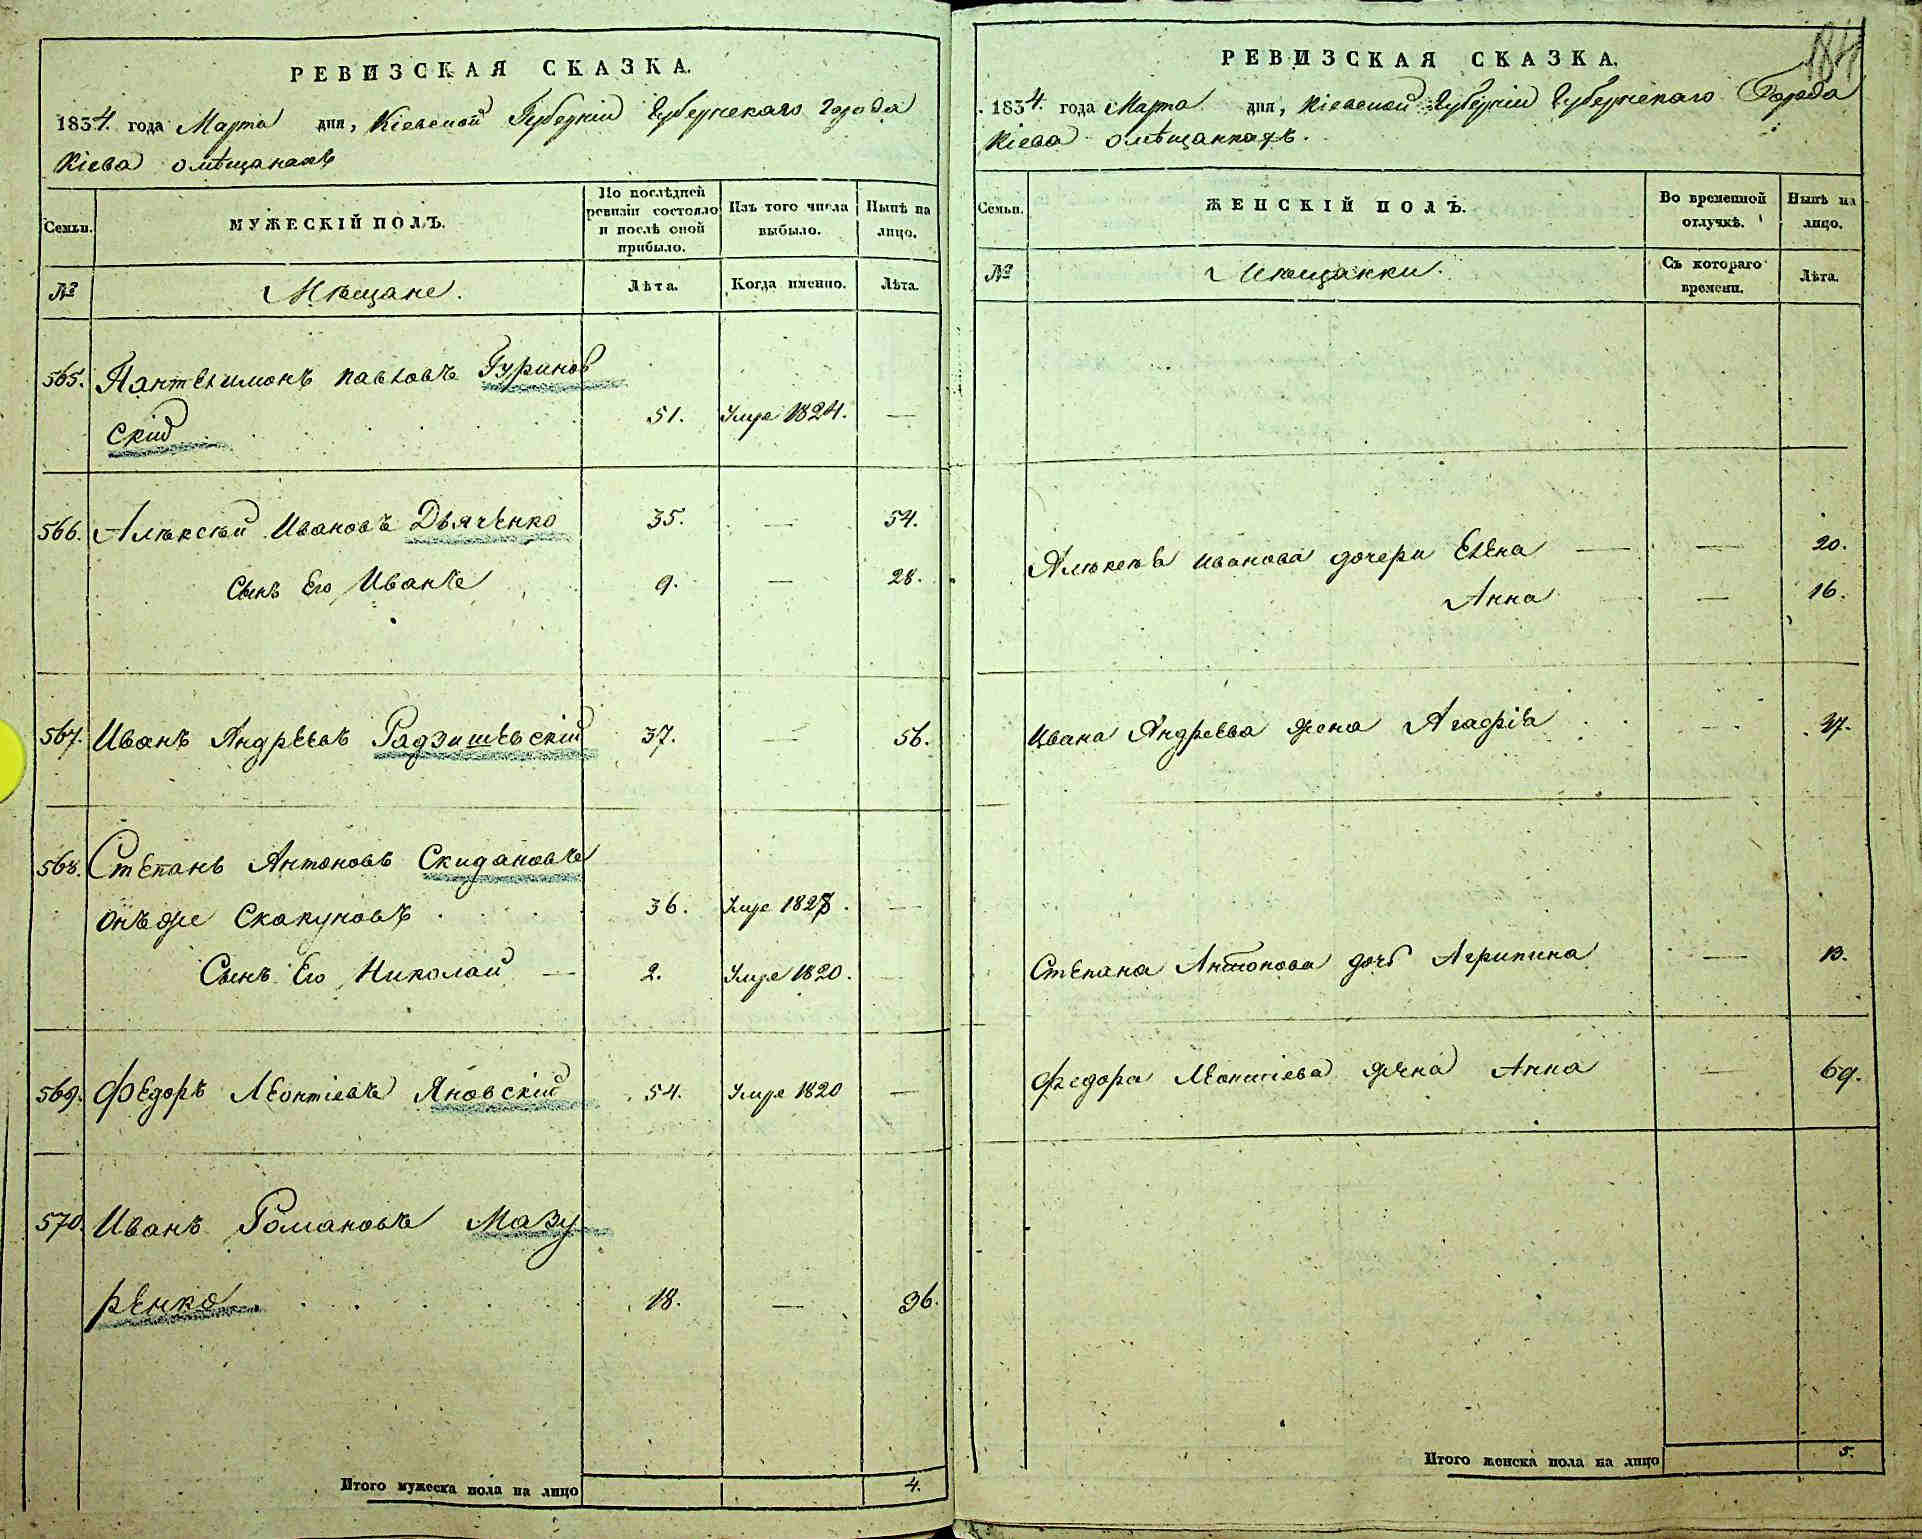 РЕВИЗСКАЯ СКАЗКА.
1834. года Марта дня, Кіевской Губерніи Губернскаго города
Кіева о мѣщанахъ
Семьи.
МУЖЕСКІЙ ПОЛЪ.
По послѣдней ревизіи состояло и послѣ оной прибыло.
Изъ того числа выбыло.
Нынѣ на лицо.
№
Мѣщане.
Лѣта.
Когда именно.
Лѣта.
565. Пантелимонъ Павловъ Гуринов
ский 51. Умре 1824. —
566. Алексѣй Ивановъ Дьяченко 35. — 54.
Сынъ Его Иванъ 9. — 28.
567. Иванъ Андреевъ Радзишевскій 37. — 56.
568. Степанъ Антоновъ Скидановъ
онъ же Скакуновъ 36. Умре 1828. —
Сынъ Его Николай — 2. Умре 1820. —
569. Федоръ Леонтіевъ Яновскій 54. Умре 1820 —
570. Иванъ Романовъ Мазу
ренко 18. — 36.
Итого мужеска пола на лицо 4.
184
РЕВИЗСКАЯ СКАЗКА.
1834. года Марта дня, Кіевской Губерніи Губернскаго Города
Кіева о мѣщанкахъ.
Семьи.
ЖЕНСКІЙ ПОЛЪ.
Во временной отлучкѣ.
Нынѣ на лицо.
№
Мѣщанки.
Съ котораго времени.
Лѣта.
Алексѣя Иванова дочери Елена — — 20.
Анна — — 16.
Ивана Андреева жена Агафія — 37.
Степана Антонова дочь Агрипина — 13.
Федора Леонтіева жена Анна — 69.
Итого женска пола на лицо 5.